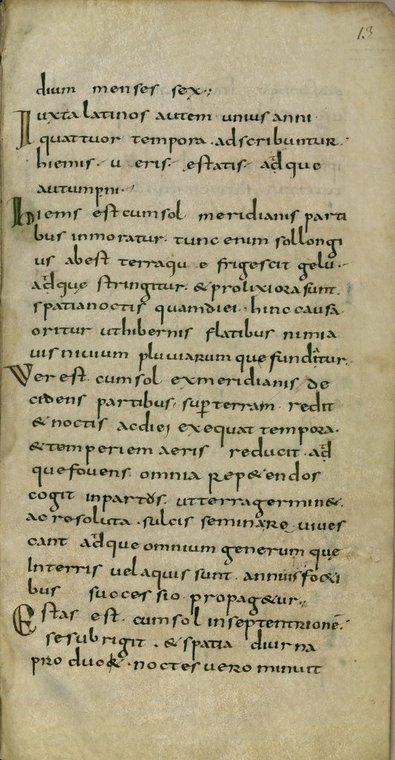 13
dium menses sex;
Iuxta latinos autem unius anni
quattuor tempora · adscribuntur ·
hiemis · ueris · estatis · adque
autumpni ·
Hiems est cum sol meridianis parti
bus inmoratur · tunc enim sol longi
us abest terraque frigescit gelu ·
adque stringitur · & prolixiora sunt
spatia noctis quam diei · hinc causa
oritur ut hibernis flatibus nimia
uis niuium pluuiarumque funditur ·
Ver est · cum sol ex meridianis de
cidens partibus · sup terram redit
& noctis ac diei exequat tempora ·
& temperiem aeris reducit · ad
que fouens omnia rep&endos
cogit in partus · ut terra germin& ·
ac resoluta · sulcis semina uiues
cant adque omnium generum que
In terris uel aquis sunt · annuis fo&i
bus successio · propag&ur ·
Estas est · cum sol in septentrione
se subrigit · & spatia diurna
producit · noctes uero minuit